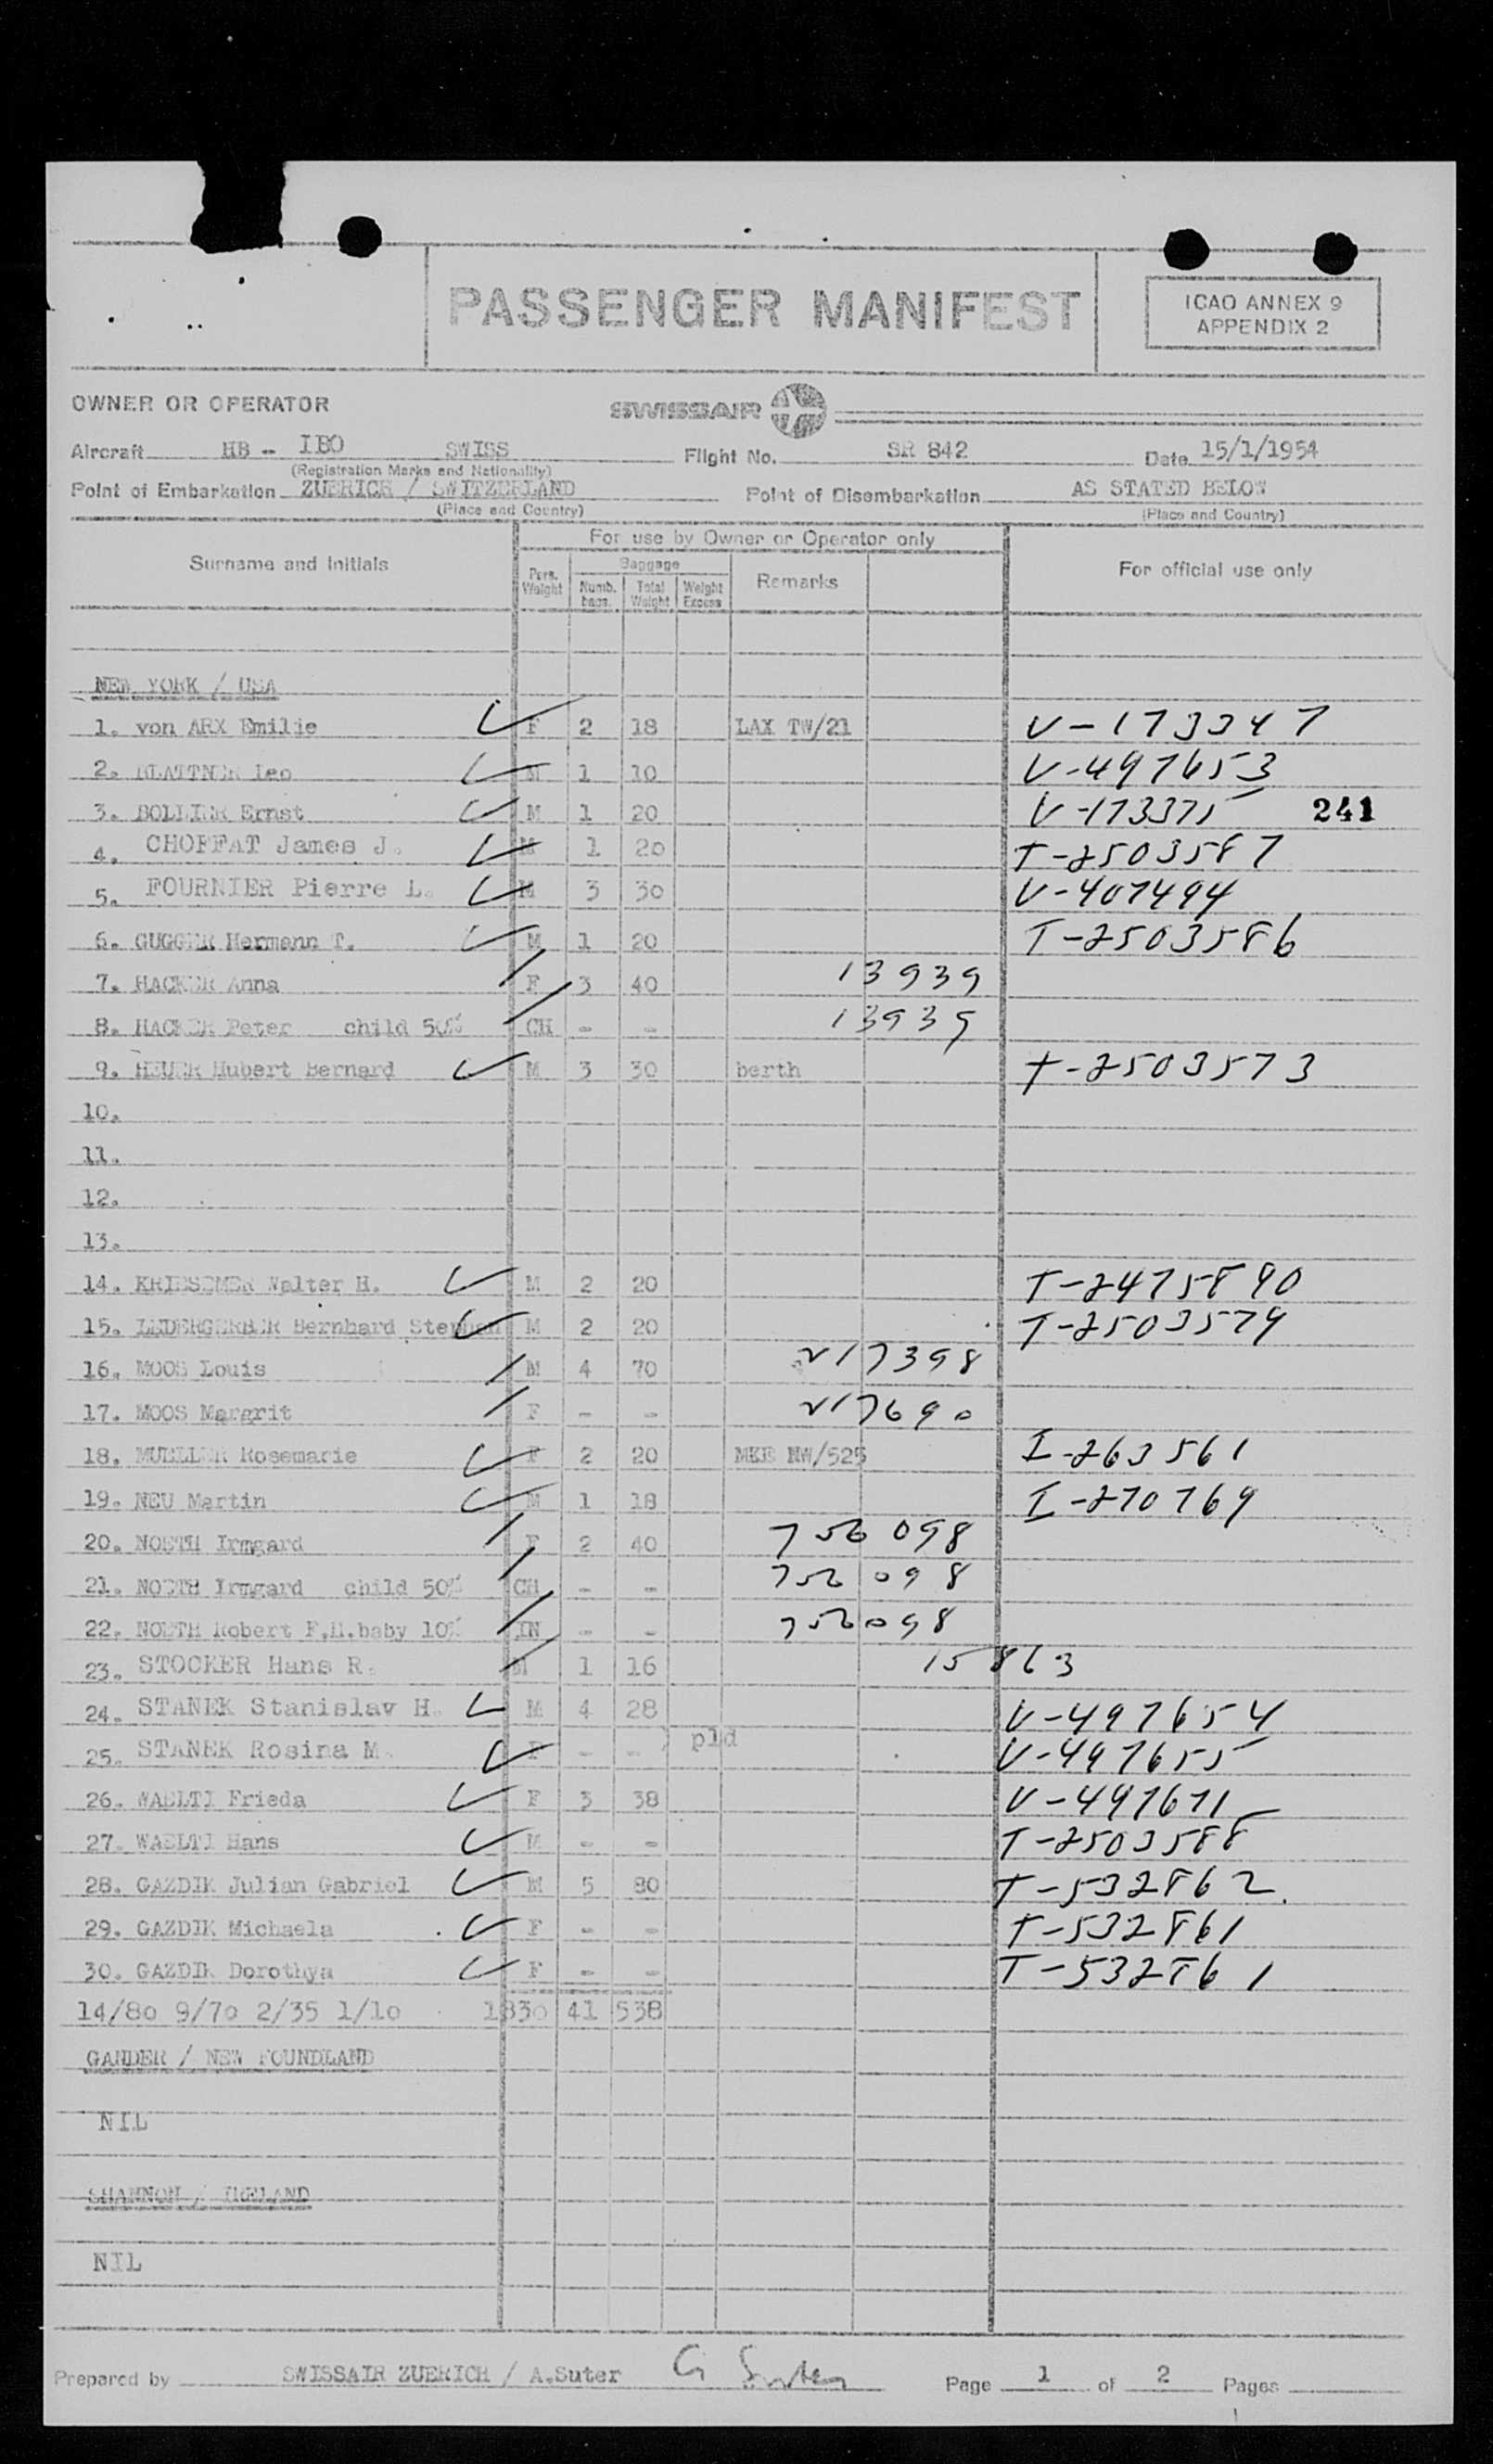 PASSENGER MANIFEST
ICAO ANNEX 9
APPENDIX 2
OWNER OR OPERATOR SWISSAIR
Aircraft HB - IBO SWISS Flight No. SR 842 Date 15/1/1954
(Registration Marks and Nationality)
Point of Embarkation ZUERICH / SWITZERLAND Point of Disembarkation AS STATED BELOW
(Place and Country) (Place and Country)
For use by Owner or Operator only
Surname and Initials Pers. Weight Baggage Numb. bags. Total Weight Weight Excess Remarks For official use only
NEW YORK / USA
1. von ARX Emilie F 2 18 LAX TW/21 V-173347
2. BLATTNER Leo M 1 10 V-497653
3. BOLLIER Ernst M 1 20 V-173375 241
4. CHOFFAT James J. M 1 20 T-2503587
5. FOURNIER Pierre L. M 3 30 V-407494
6. GUGGER Hermann T. M 1 20 T-2503586
7. HACKER Anna F 3 40 13939
8. HACKER Peter child 50% CH - - 13939
9. HEUER Hubert Bernard M 3 30 berth T-2503573
10.
11.
12.
13.
14. KRIESEMER Walter H. M 2 20 T-2475890
15. LEDERGERBER Bernhard Stephan M 2 20 T-2503579
16. MOOS Louis M 4 70 V17398
17. MOOS Margrit F - - V17690
18. MUELLER Rosemarie F 2 20 MKE NW/525 I-263561
19. NEU Martin M 1 18 I-270769
20. NOETH Irmgard F 2 40 756098
21. NOETH Irmgard child 50% CH - - 756098
22. NOETH Robert F.H. baby 10% IN - - 756098
23. STOCKER Hans R. M 1 16 15863
24. STANEK Stanislav H. M 4 28 V-497654
25. STANEK Rosina M. F - - ) pld V-497655
26. WAELTI Frieda F 3 38 V-497671
27. WAELTI Hans M - - T-2503588
28. GAZDIK Julian Gabriel M 5 80 T-532862.
29. GAZDIK Michaela F - - T-532861
30. GAZDIK Dorothya F - - T-532861
14/80 9/70 2/35 1/10 1830 41 538
GANDER / NEW FOUNDLAND
NIL
SHANNON / IRELAND
NIL
Prepared by SWISSAIR ZUERICH / A.Suter G Suter Page 1 of 2 Pages